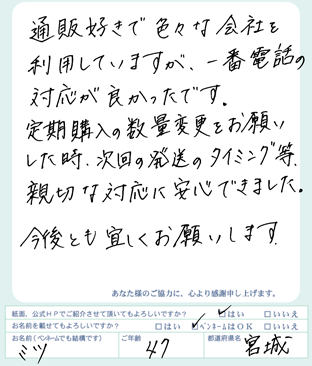 通販好きで色々な会社を
利用していますが、一番電話の
対応が良かったです。
定期購入の数量変更をお願い
した時、次回の発送のタイミング等、
親切な対応に安心できました。
今後とも宜しくお願いします。
あなた様のご協力に、心より感謝申し上げます。
紙面、公式HPでご紹介させて頂いてもよろしいですか？ ☑はい □いいえ
お名前を載せてもよろしいですか？ □はい ☑ペンネームはOK □いいえ
お名前(ペンネームでも結構です) ミツ ご年齢 47 都道府県名 宮城